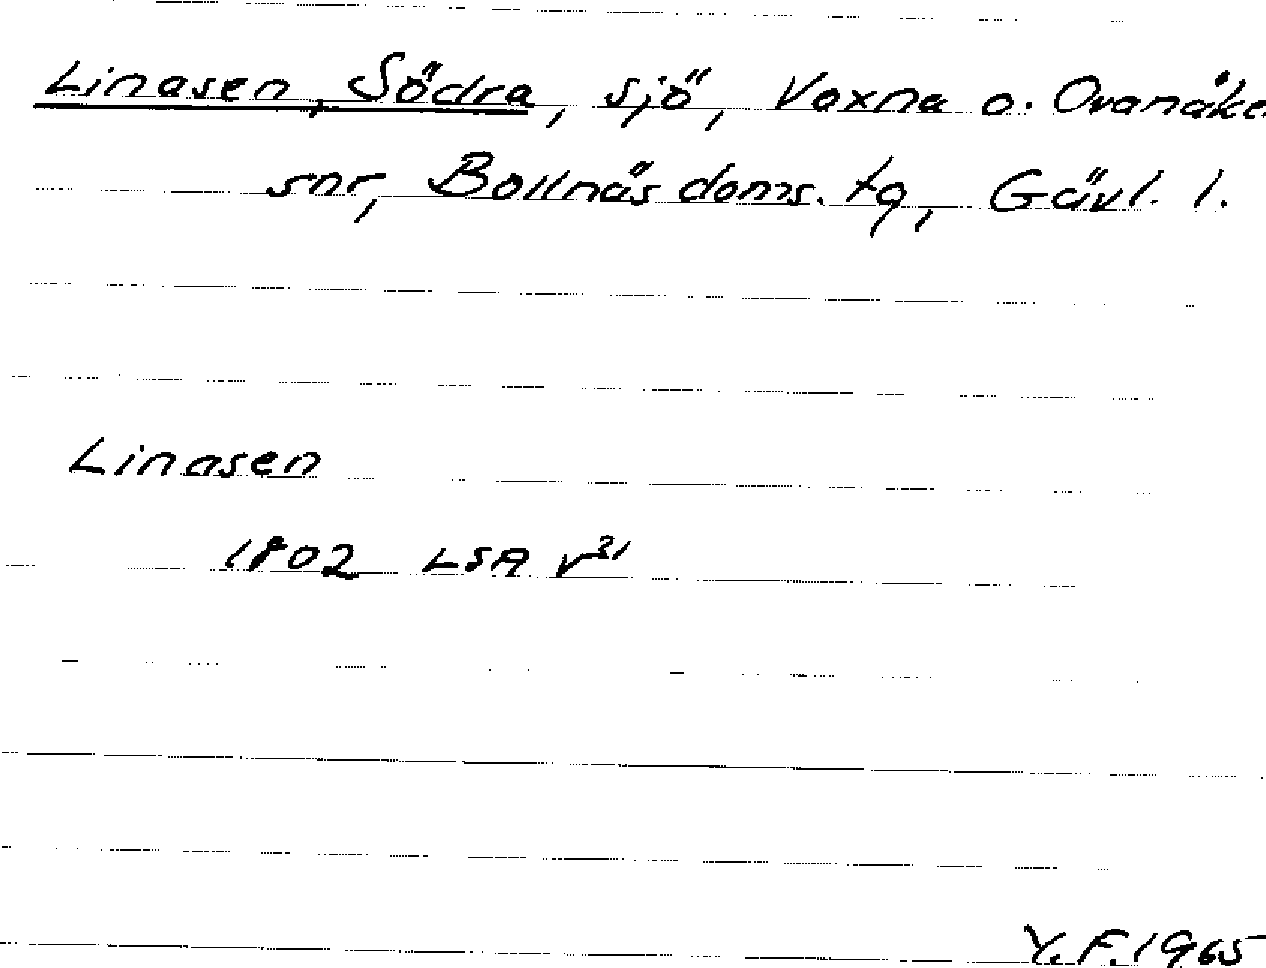 Linasen, Södra, sjö, Voxna o. Ovanåke
snr, Bollnäs doms. tg, Gävl. l.
Linasen
1802 LSA v31
Y.F. 1965